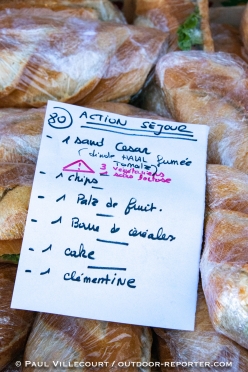 80 ACTION SÉJOUR
- 1 sand Cesar
(dinde HALAL fumée
tomate)
⚠ 3 végétariens
2 sans tomate
- 1 chips
- 1 Pate de fruit.
- 1 Barre de céréales
- 1 cake
- 1 clémentine
© PAUL VILLECOURT / OUTDOOR-REPORTER.COM